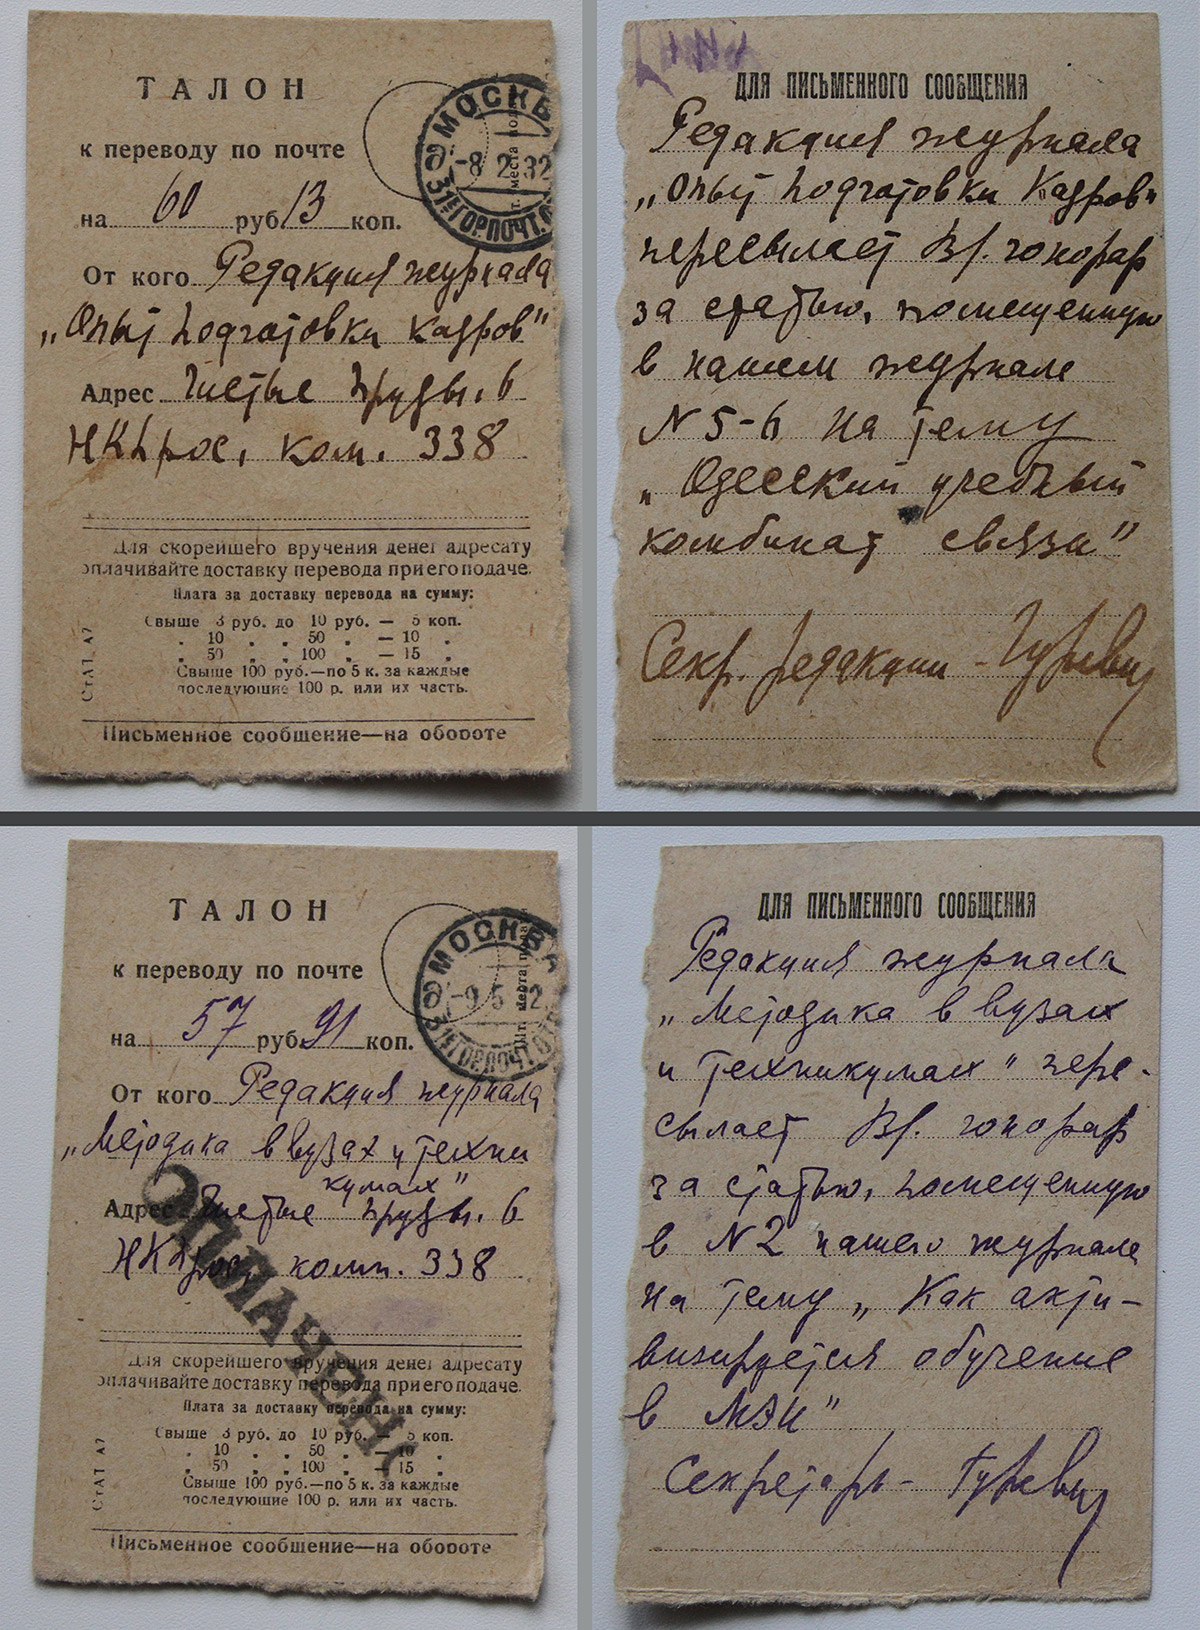 ТАЛОН
к переводу по почте
на 60 руб 13 коп.
МОСКВА
-8 2 32
31 ГОРПОЧТ.
места под
От кого Редакция журнала
„Опыт подготовки кадров"
Адрес Чистые пруды. 6
НКПрос, ком. 338
Для скорейшего вручения денег адресату
оплачивайте доставку перевода при его подаче.
Плата за доставку перевода на сумму:
Свыше 3 руб. до 10 руб. — 5 коп.
„ 10 „ „ 50 „ — 10 „
„ 50 „ „ 100 „ — 15 „
Свыше 100 руб.—по 5 к. за каждые
последующие 100 р. или их часть.
СтАТ. А7
Письменное сообщение—на обороте
ДЛЯ ПИСЬМЕННОГО СООБЩЕНИЯ
Редакция журнала
„Опыт подготовки Кадров"
пересылает Вам гонорар
за статью, помещенную
в нашем журнале
N 5-6 на тему
„Одесский учебный
комбинат связи"
Секр. редакции - Гуревич
ТАЛОН
к переводу по почте
на 57 руб. 91 коп.
МОСКВА
-9 5 2
31 ГОРПОЧТ.
места под
От кого Редакция журнала
„Методика в вузах и техни
кумах"
Адрес Чистые пруды. 6
НКПрос, комн. 338
ОПЛАЧЕН
Для скорейшего вручения денег адресату
оплачивайте доставку перевода при его подаче.
Плата за доставку перевода на сумму:
Свыше 3 руб. до 10 руб. — 5 коп.
„ 10 „ „ 50 „ — 10 „
„ 50 „ „ 100 „ — 15 „
Свыше 100 руб.—по 5 к. за каждые
последующие 100 р. или их часть.
СтАТ. А7
Письменное сообщение—на обороте
ДЛЯ ПИСЬМЕННОГО СООБЩЕНИЯ
Редакция журнала
„Методика в вузах
и техникумах" пере-
сылает Вам гонорар
за статью, помещенную
в N2 нашего журнала
на тему „Как акти-
визируется обучение
в МЭИ"
Секретарь - Гуревич